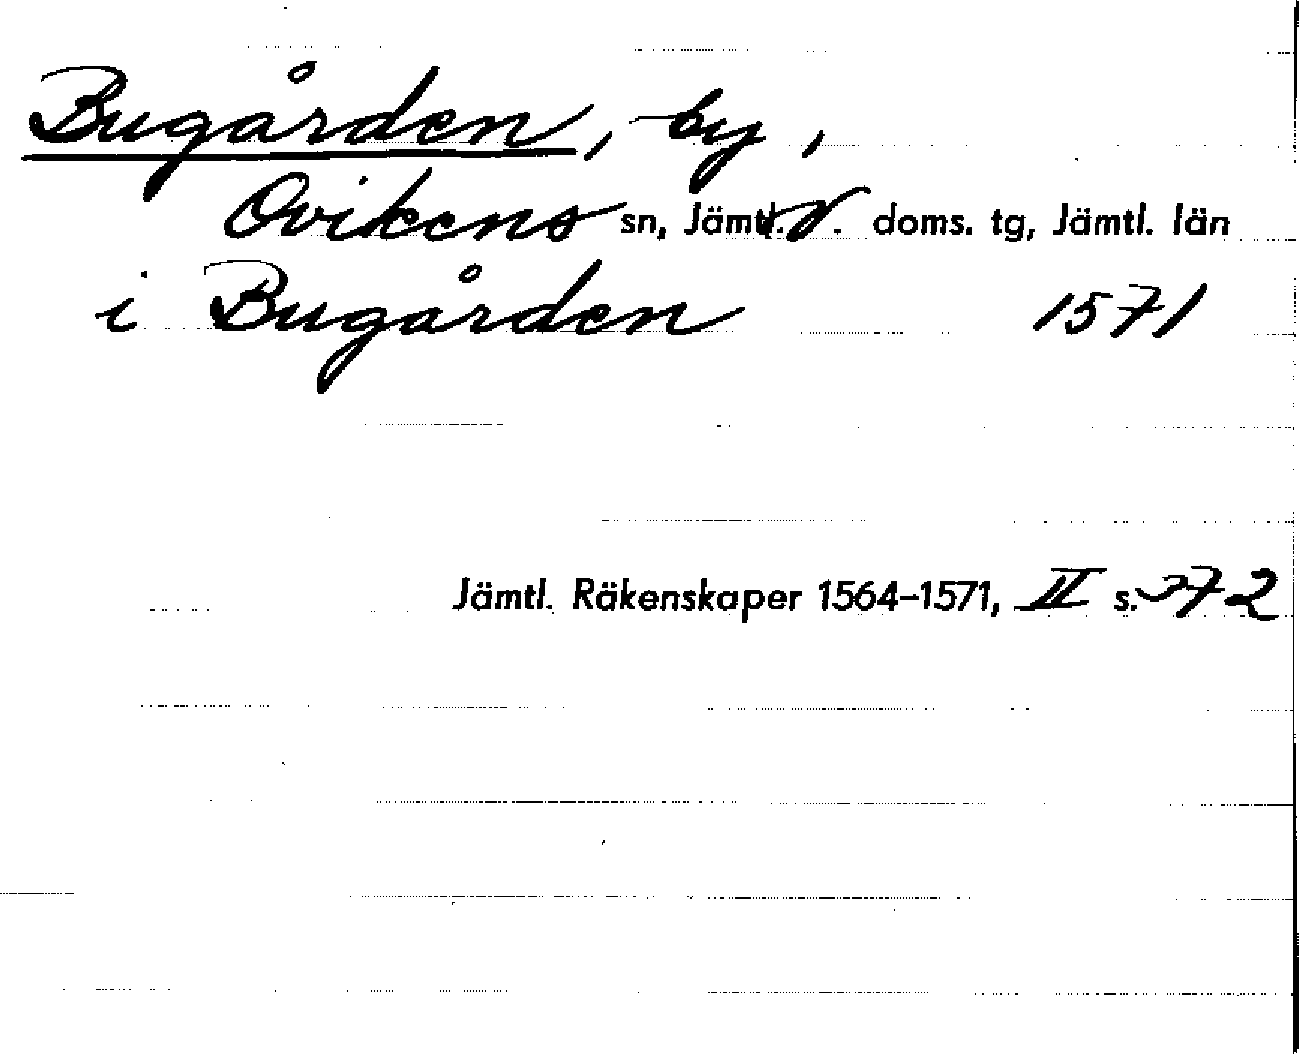 Bugården, by,
Ovikens sn, Jämtl. V. doms. tg, Jämtl. län
i Bugården 1571
Jämtl. Räkenskaper 1564-1571, II s. 372